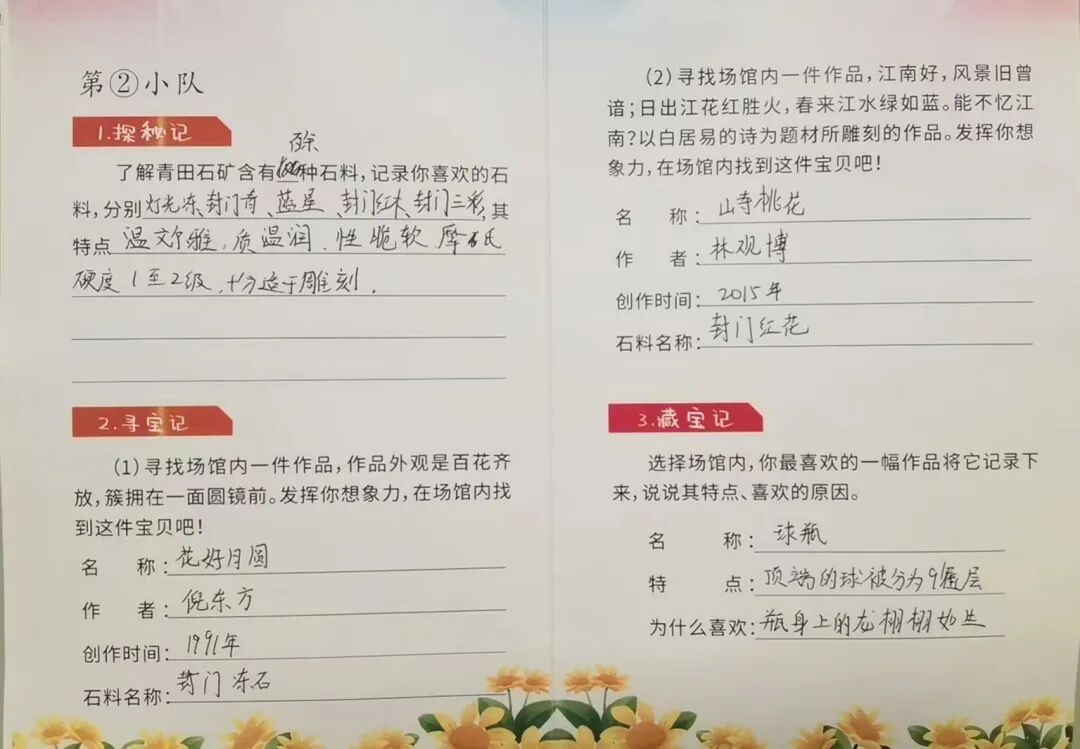 第②小队
1.探秘记
余
了解青田石矿含有100种石料，记录你喜欢的石
料，分别灯光冻、封门奇、蓝星、封门红木、封门三彩，其
特点 温文尔雅，质温润、性脆软、摩氏
硬度1至2级，十分适于雕刻．
2.寻宝记
(1)寻找场馆内一件作品，作品外观是百花齐
放，簇拥在一面圆镜前。发挥你想象力，在场馆内找
到这件宝贝吧！
名 称：花好月圆
作 者：倪东方
创作时间：1991年
石料名称：封门冻石
(2)寻找场馆内一件作品，江南好，风景旧曾
谙；日出江花红胜火，春来江水绿如蓝。能不忆江
南？以白居易的诗为题材所雕刻的作品。发挥你想
象力，在场馆内找到这件宝贝吧！
名 称：山寺桃花
作 者：林观博
创作时间：2015年
石料名称：封门红花
3.藏宝记
选择场馆内，你最喜欢的一幅作品将它记录下
来，说说其特点、喜欢的原因。
名 称：球瓶
特 点：顶端的球被分为9层
为什么喜欢：瓶身上的龙栩栩如生